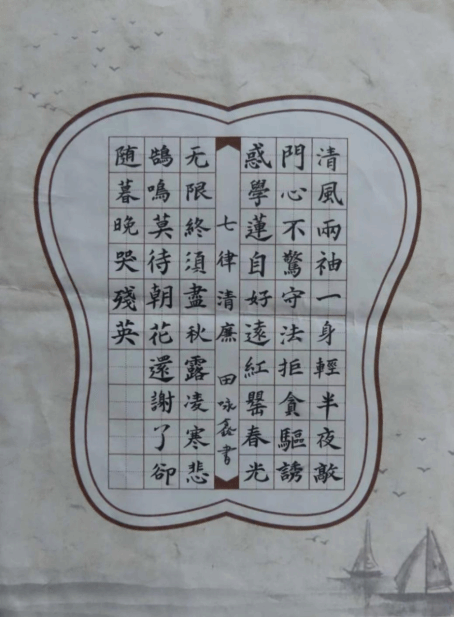 清風兩袖一身輕半夜敲
門心不驚守法拒貪驅誘
惑學蓮自好遠紅罌春光
七律清廉 田咏書
无限終須盡秋露凌寒悲
鵠鳴莫待朝花還謝了卻
随暮晚哭殘英